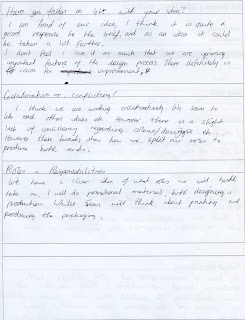 Have you fallen in love with your idea?
I am fond of our idea, I think it is quite a
good response to the brief, and as an idea it could
be taken a lot further.
I don't feel I love it so much that we are ignoring
important factors of the design process. There definitely is
room for improvement.
Collaborative or conflicting?
I think we are working collaboratively. We seem to
like each others ideas etc. However there is a slight
lack of consistency regarding colours/designs etc.
However these 
how we split our roles to
produce both ends.
Roles & Responsibilities
We have a clear idea of what roles we will both
take on. I will do promotional material, both designing &
production. Whilst Sean will think about printing and
producing the packaging.